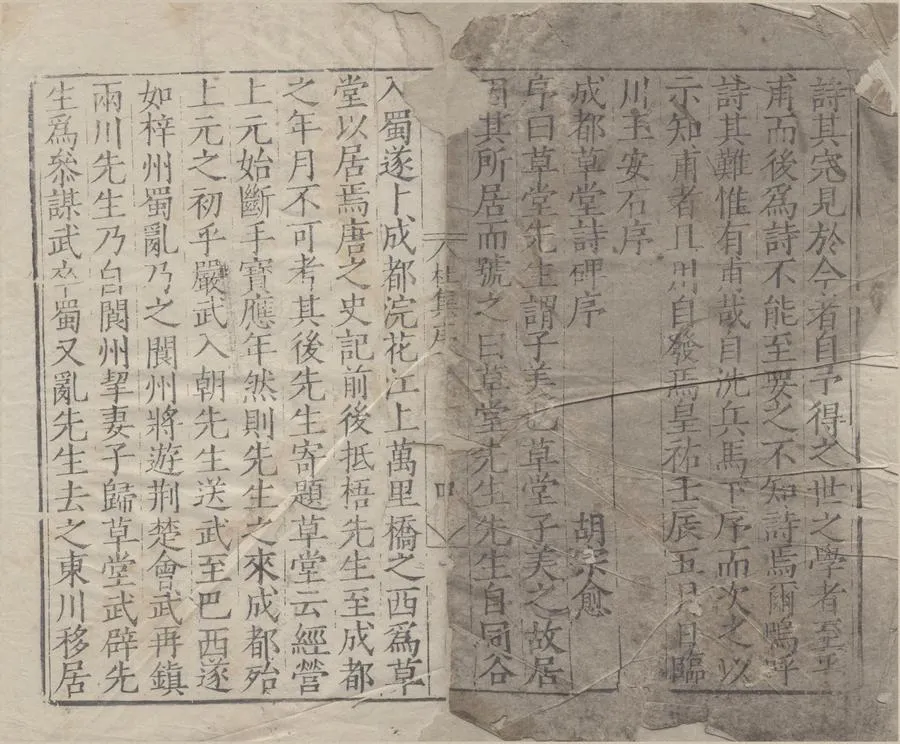 詩其完見於今者自予得之世之學者至乎
甫而後爲詩不能至要之不知詩焉爾嗚呼
詩其難惟有甫哉自洗兵馬下序而次之以
示知甫者且用自發焉皇祐壬辰五月日臨
川王安石序
成都草堂詩碑序
胡宗愈
序曰草堂先生謂子美也草堂子美之故居
因其所居而號之曰草堂先生先生自同谷
杜集序
四
入蜀遂卜成都浣花江上萬里橋之西爲草
堂以居焉唐之史記前後抵梧先生至成都
之年月不可考其後先生寄題草堂云經營
上元始斷手寶應年然則先生之來成都殆
上元之初乎嚴武入朝先生送武至巴西遂
如梓州蜀亂乃之閬州將遊荆楚會武再鎮
兩川先生乃自閬州挈妻子歸草堂武辟先
生爲叅謀武卒蜀又亂先生去之東川移居